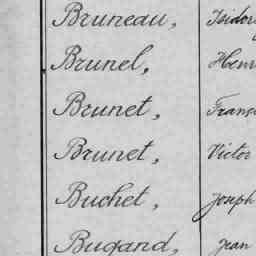 Bruneau, Isidor
Brunel, Henr
Brunet, Franç
Brunet, Victor
Buchet, Joseph
Bugand, Jean